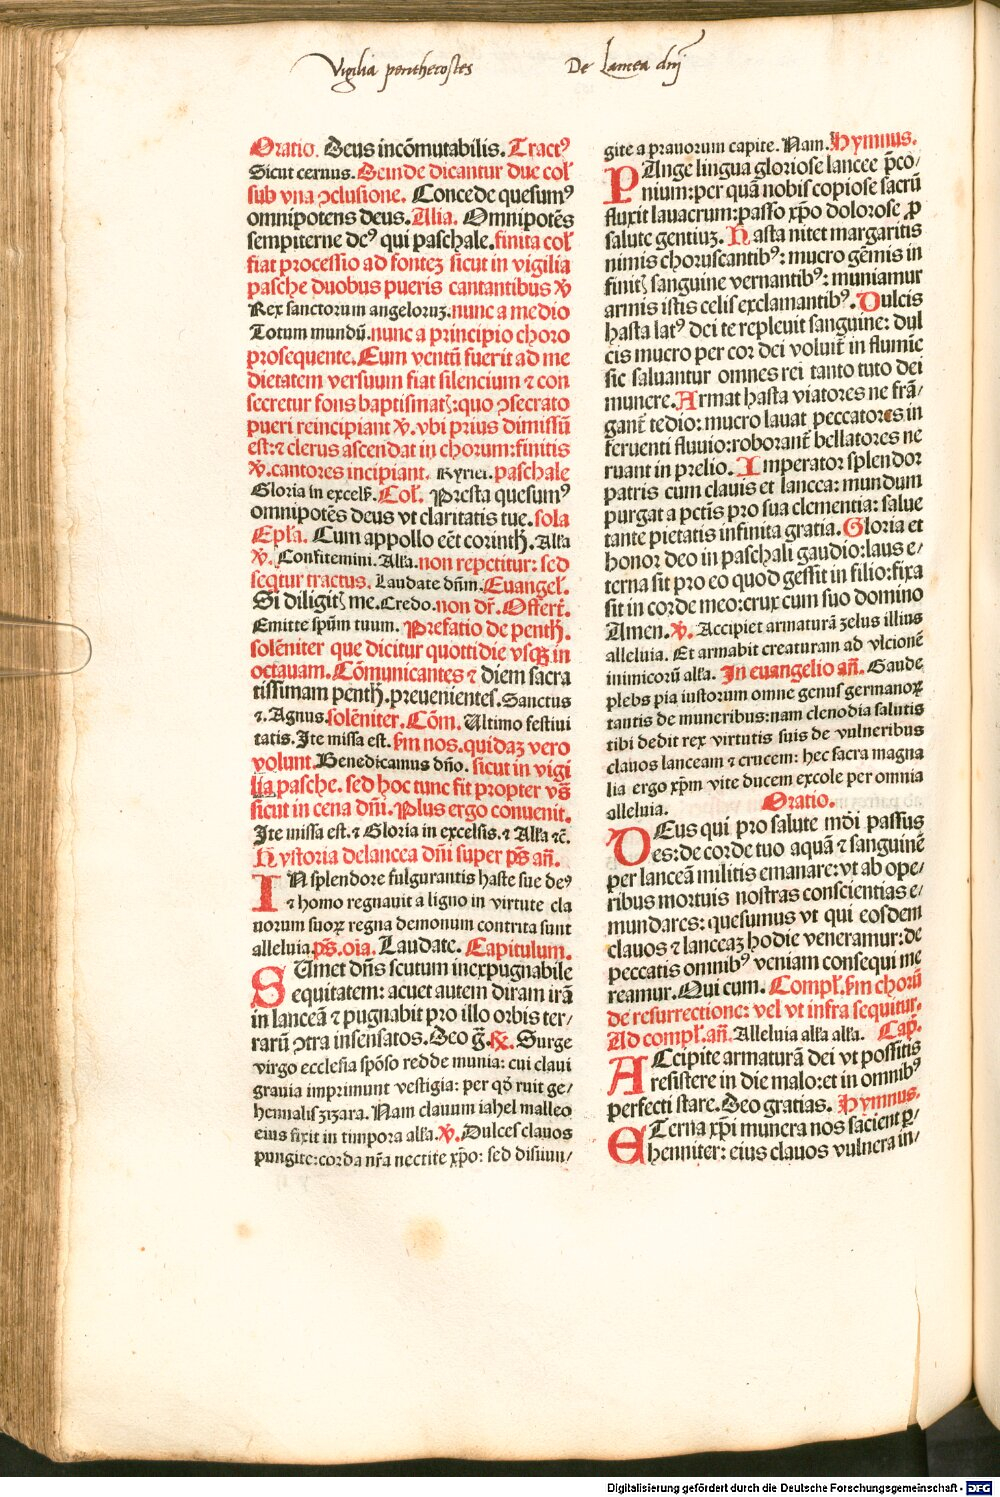 Vigilia penthecostes
De Lancea dnj
Oratio. Deus incōmutabilis. Tractꝰ
Sicut ceruus. Deinde dicantur due col̄
sub vna ↄclusione. Concede quesumꝰ
omnipotens deus. Alia. Omnipotēs
sempiterne deꝰ qui paschale. finita col̄
fiat processio ad fontez sicut in vigilia
pasche duobus pueris cantantibus ℣
Rex sanctorum angeloruz. nunc a medio
Totum mundū. nunc a principio choro
prosequente. Cum ventū fuerit ad me
dietatem versuum fiat silencium ⁊ con
secretur fons baptismat͛: quo ↄsecrato
pueri reincipiant ℣. vbi prius dimissū
est: ⁊ clerus ascendat in chorum: finitis
℣. cantores incipiant. Kyriel. paschale
Gloria in excelſ. Col̄. Presta quesumꝰ
omnipotēs deus vt claritatis tue. sola
Epl̄a. Cum appollo eēt corinth̄. Alľa
℣. Confitemini. Alľa. non repetitur: sed
seq̄tur tractus. Laudate dn̄m. Euangel̄.
Si diligit͛ me. Credo. non dr̄. Offert̄.
Emitte spūm tuum. Prefatio de penth̄.
solēniter que dicitur quottidie vsqꝫ in
octauam. Cōmunicantes ⁊ diem sacra
tissimam penth̄. preuenientes. Sanctus
⁊. Agnus. solēniter. Cōm. Ultimo festiui
tatis. Ite missa est. ẜm nos. quidaz vero
volunt. Benedicamus dn̄o. sicut in vigi
lia pasche. sed hoc tunc fit propter vs̄
sicut in cena dn̄i. Plus ergo conuenit.
Ite missa est. ⁊ Gloria in excelsis. ⁊ Alľa ⁊c̄.
Hystoria de lancea dn̄i super ps̄ an̄.
IN splendore fulgurantis haste sue deꝰ
⁊ homo regnauit a ligno in virtute cla
uorum suoꝝ regna demonum contrita sunt
alleluia. ps̄. oīa. Laudate. Capitulum.
SUmet dn̄s scutum inexpugnabile
equitatem: acuet autem diram irā
in lanceā ⁊ pugnabit pro illo orbis ter/
rarū ↄtra insensatos. Deo g̅. ℟. Surge
virgo ecclesia spōso redde munia: cui claui
grauia imprimunt vestigia: per qō ruit ge/
hennalis zizara. Nam clauum iahel malleo
eius fixit in timpora alľa. ℣. Dulces clauos
pungite: corda nr̄a nectite xp̄o: sed disiun/
gite a prauorum capite. Nam. Hymnus.
PAnge lingua gloriose lancee p̄co/
nium: per quā nobis copiose sacrū
fluxit lauacrum: passo xp̄o dolorose ꝓ
salute gentiuz. Hasta nitet margaritis
nimis choruscantibꝰ: mucro gēmis in
finit͛ sanguine vernantibꝰ: muniamur
armis istis celis exclamantibꝰ. Dulcis
hasta latꝰ dei te repleuit sanguine: dul
cis mucro per cor dei voluit̄ in flumīe
sic saluantur omnes rei tanto tuto dei
munere. Armat hasta viatores ne frā/
gant̄ tedio: mucro lauat peccatores in
feruenti fluuio: roborant̄ bellatores ne
ruant in prelio. Imperator splendor
patris cum clauis et lancea: mundum
purgat a pctīs pro sua clementia: salue
tante pietatis infinita gratia. Gloria et
honor deo in paschali gaudio: laus e/
terna sit pro eo quod gessit in filio: fixa
sit in corde meo: crux cum suo domino
Amen. ℣. Accipiet armaturā zelus illius
alleluia. Et armabit creaturam ad vlcionē
inimicorū alľa. In euangelio an̄. Gaude
plebs pia iustorum omne genus germanoꝝ
tantis de muneribus: nam clenodia salutis
tibi dedit rex virtutis suis de vulneribus
clauos lanceam ⁊ crucem: hec sacra magna
lia ergo xp̄m vite ducem excole per omnia
alleluia. Oratio.
DEus qui pro salute mōi passus
es: de corde tuo aquā ⁊ sanguinē
per lanceā militis emanare: vt ab ope/
ribus mortuis nostras conscientias e/
mundares: quesumus vt qui eosdem
clauos ⁊ lanceaz hodie veneramur: de
peccatis omnibꝰ veniam consequi me
reamur. Qui cum. Compl̄. ẜm chorū
de resurrectione: vel vt infra sequitur.
Ad compl̄. an̄. Alleluia alľa alľa. Cap̄.
ACcipite armaturā dei vt possitis
resistere in die malo: et in omnibꝰ
perfecti stare. Deo gratias. Hymnus.
ETerna xp̄i munera nos sacient ꝑ/
henniter: eius clauos vulnera in/
Digitalisierung gefördert durch die Deutsche Forschungsgemeinschaft - DFG